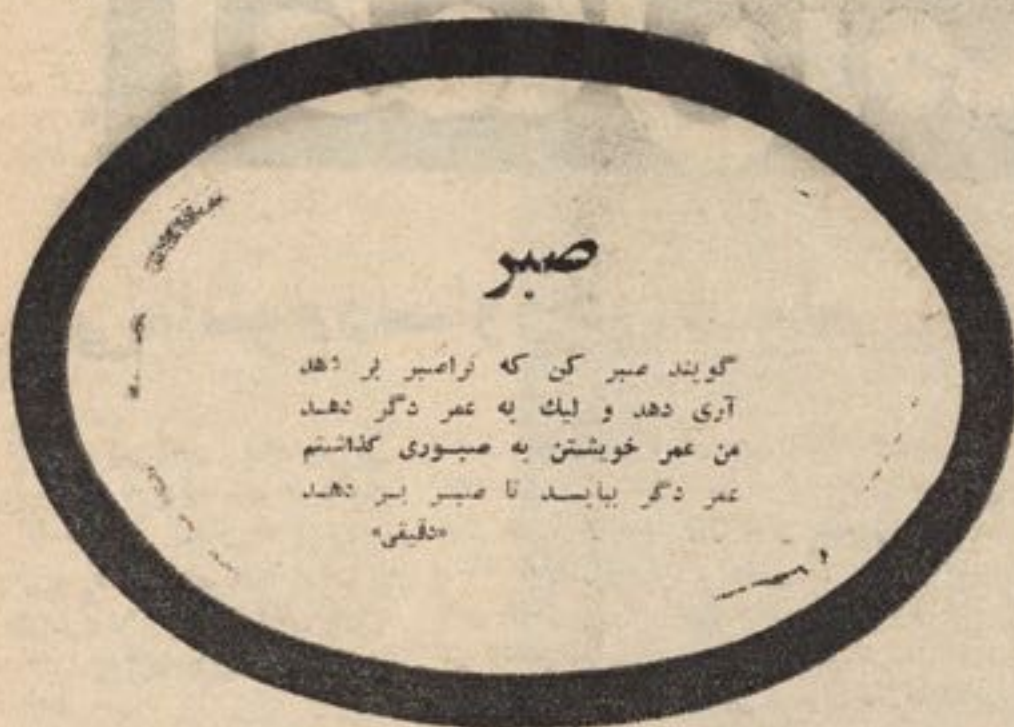 صبر
گویند صبر کن که تراصبر بر دهد
آری دهد و لیک به عمر دگر دهد
من عمر خویشتن به صبوری گذاشتم
عمر دگر ببایسد تا صبر بر دهد
«دقیقی»